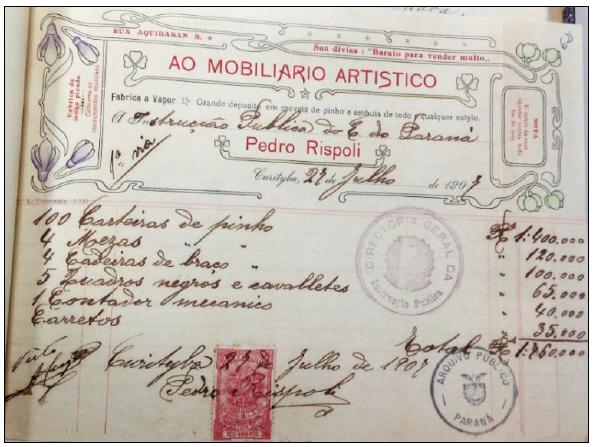 62
RUA AQUIDABAN N. 8
Sua divisa: "Barato para vender muito..
AO MOBILIARIO ARTISTICO
Fabrica a Vapor Grande deposito em moveis de pinho e ambuia de todo e qualquer estylo.
Fabrica de
lenha picada
instrumentos musicaes
NOTA
A Instrucção Publica do E. do Paraná
1ª via
Pedro Rispoli
Curityba, 27 de Julho de 1907
100 Carteiras de pinho R$ 1:400.000
4 Mezas " " " 120.000
4 Cadeiras de braço " " 100.000
5 Quadros negros e cavalletes " 65.000
1 Contador mecanico " 40.000
Carretos " 35.000
Total R$ 1:760.000
Curityba 27 de Julho de 1907
Pedro Rispoli
DIRECTORIA GERAL DA
Instrucção Publica
ARQUIVO PÚBLICO
PARANÁ